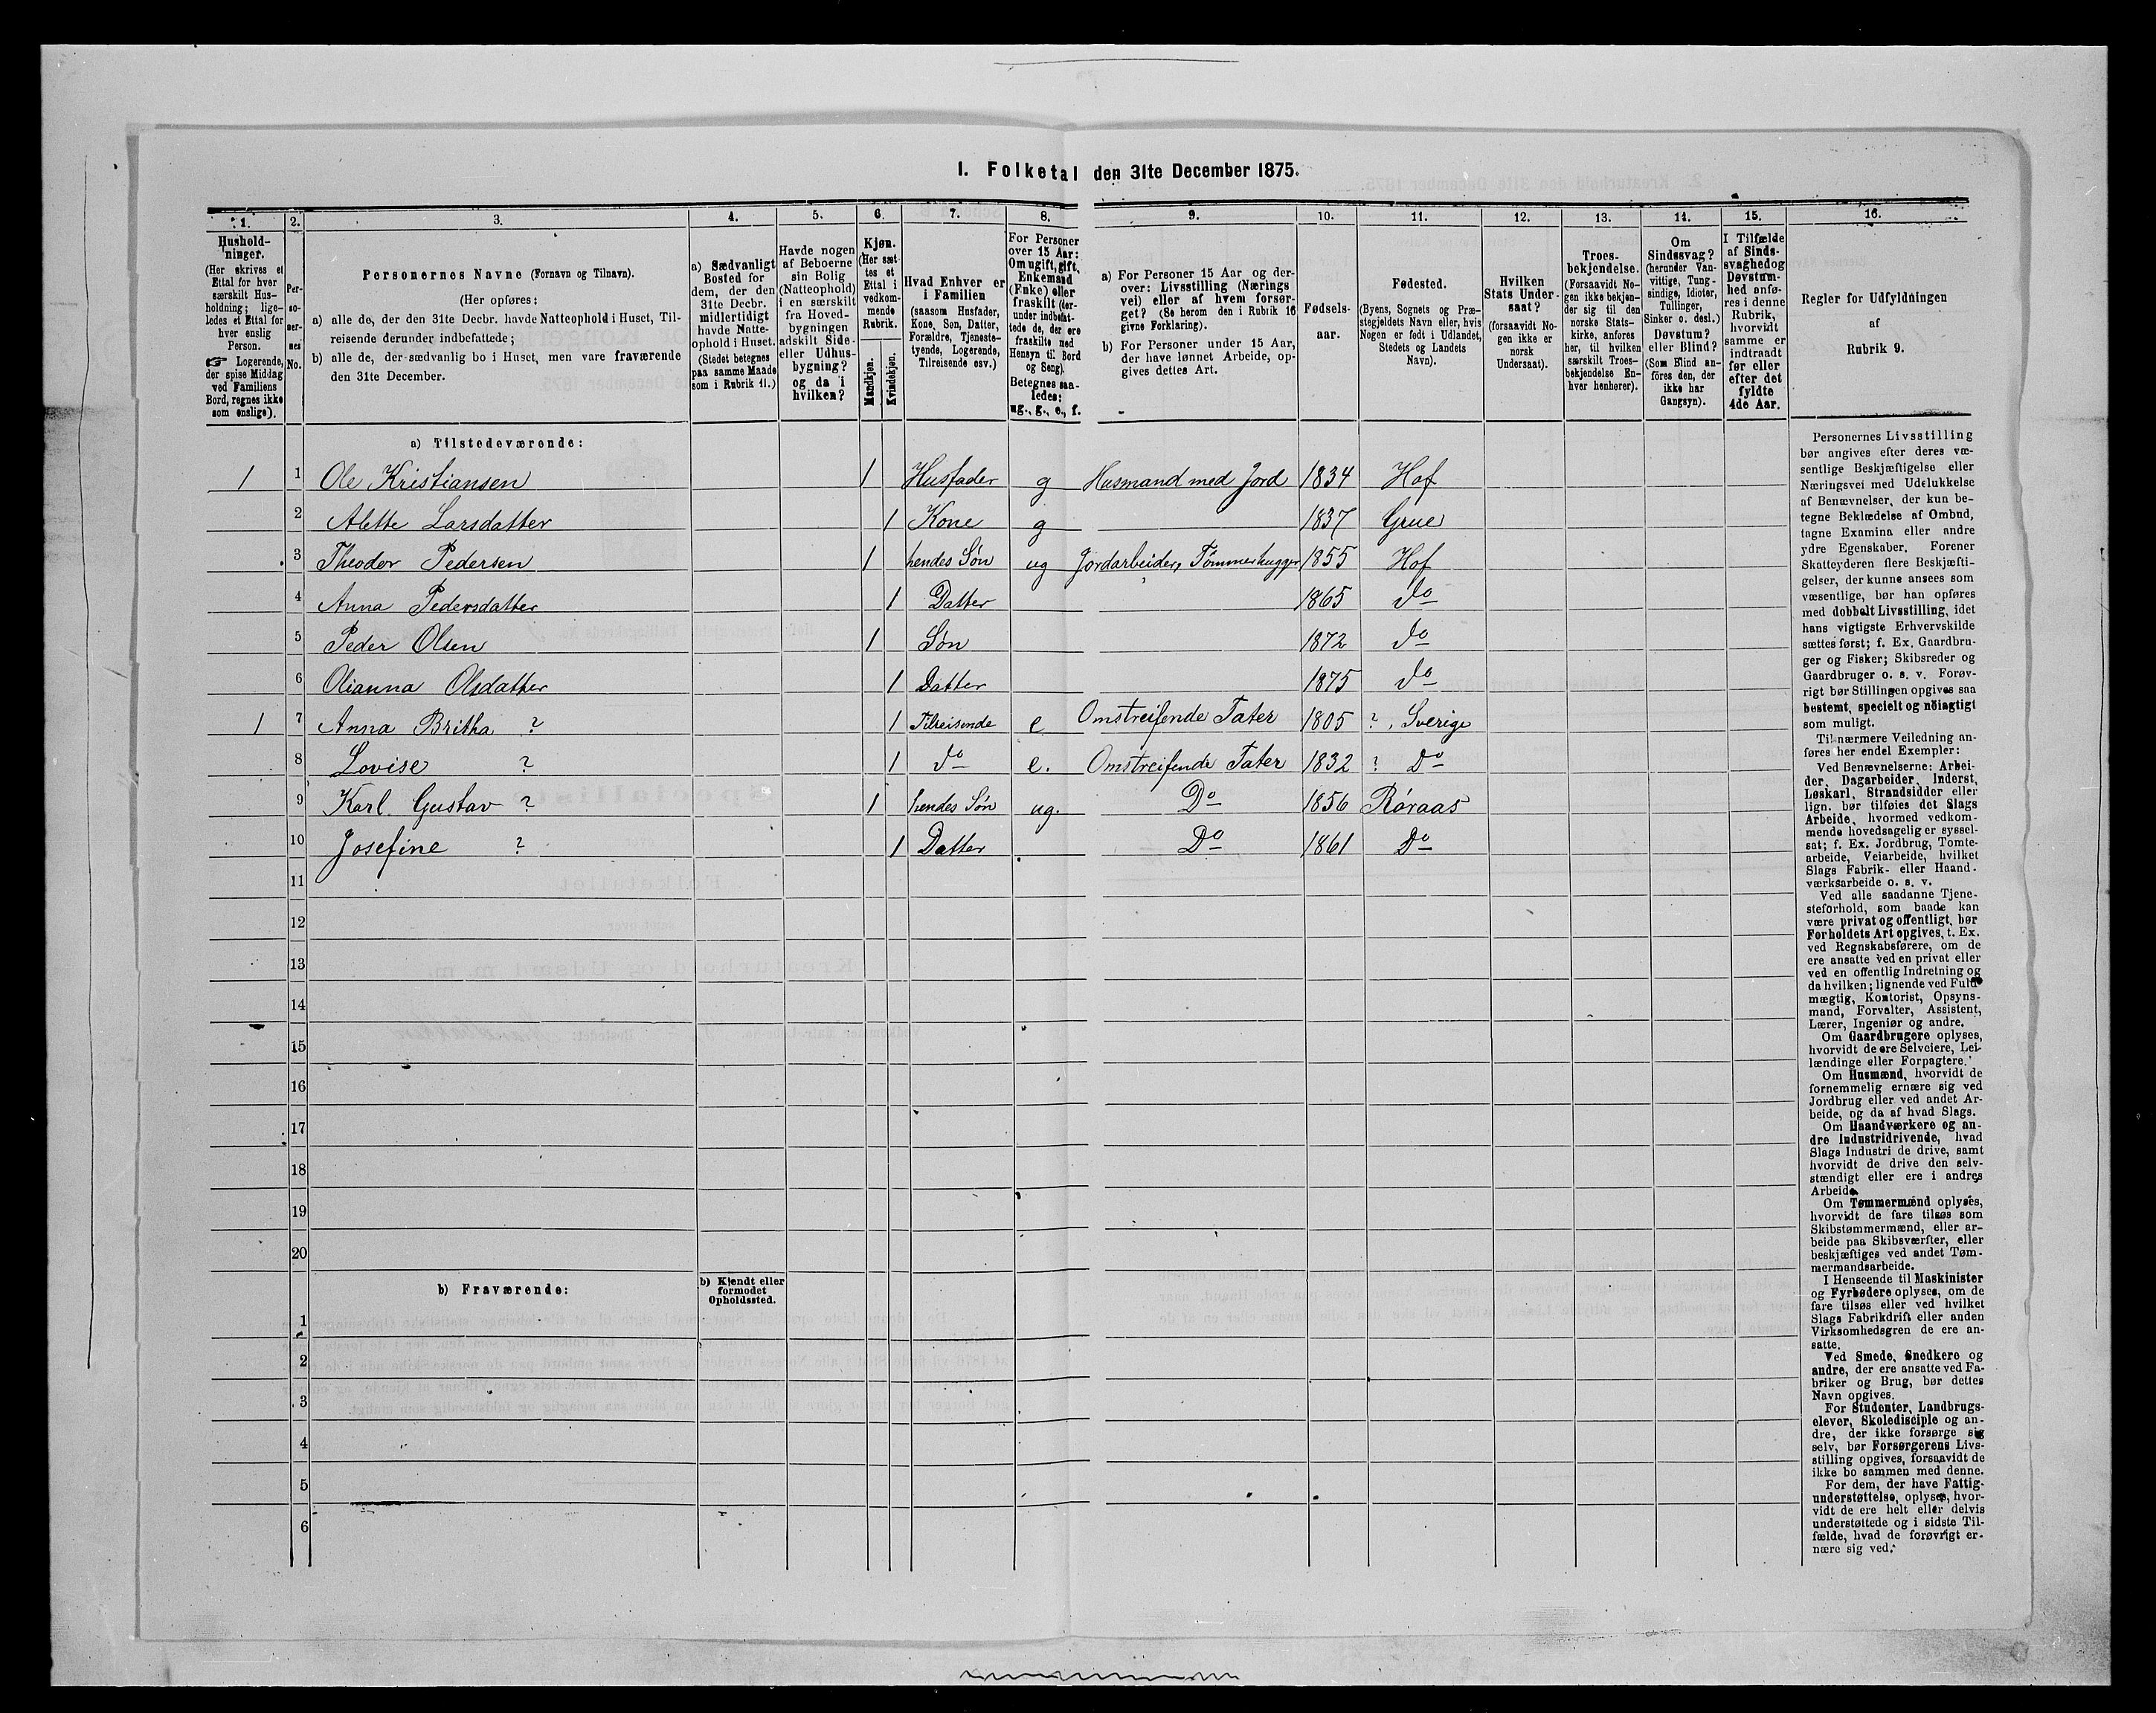 I. Folketal den 31te December 1875.
1. 2. 3. 4. 5. 6. 7. 8. 9. 10. 11. 12. 13. 14. 15. 16.
Hushold-
ninger.
(Her skrives et
Ettal for hver
særskilt Hus-
holdning; lige-
ledes et Ettal for
hver enslig
Person.
☞ Logerende,
der spise Middag
ved Familiens
Bord, regnes ikke
som enslige).
Per-
so-
ner-
nes
No.
Personernes Navne (Fornavn og Tilnavn).
(Her opføres:
a) alle de, der den 31te Decbr. havde Natteophold i Huset, Til-
reisende derunder indbefattede;
b) alle de, der sædvanlig bo i Huset, men vare fraværende
den 31te December.
a) Sædvanligt
Bosted for
dem, der den
31te Decbr.
midlertidigt
havde Natte-
ophold i Huset.
(Stedet betegnes
paa samme Maade
som i Rubrik 11.)
Havde nogen
af Beboerne
sin Bolig
(Natteophold)
i en særskilt
fra Hoved-
bygningen
adskilt Side-
eller Udhus-
bygning?
og da i
hvilken?
Kjøn.
(Her sæt-
tes et
Ettal i
vedkom-
mende
Rubrik.
Mandkjøn.
Kvindekjøn.
Hvad Enhver er
i Familien
(saasom Husfader,
Kone, Søn, Datter,
Forældre, Tjeneste-
tyende, Logerende,
Tilreisende osv.)
For Personer
over 15 Aar:
Om ugift, gift,
Enkemand
(Enke) eller
fraskilt (der-
under indbefat-
tede de, der ere
fraskilte med
Hensyn til Bord
og Seng).
Betegnes saa-
ledes:
ug., g., e., f.
a) For Personer 15 Aar og der-
over: Livsstilling (Nærings
vei) eller af hvem forsør-
get? (Se herom den i Rubrik 16
givne Forklaring).
b) For Personer under 15 Aar,
der have lønnet Arbeide, op-
gives dettes Art.
Fødsels-
aar.
Fødested.
(Byens, Sognets og Præ-
stegjeldets Navn eller, hvis
Nogen er født i Udlandet,
Stedets og Landets
Navn).
Hvilken
Stats Under-
saat?
(forsaavidt No-
gen ikke er
norsk
Undersaat).
Troes-
bekjendelse.
(Forsaavidt No-
gen ikke bekjen-
der sig til den
norske Stats-
kirke, anføres
her, til hvilken
særskilt Troes-
bekjendelse En-
hver henhører).
Om
Sindssvag?
(herunder Van-
vittige, Tung-
sindige, Idioter,
Tullinger,
Sinker o. desl.)
Døvstum?
eller Blind?
(Som Blind an-
föres den, der
ikke har
Gangsyn).
I Tilfælde
af Sinds-
svaghed og
Døvstum-
hed anfø-
res i denne
Rubrik,
hvorvidt
samme er
indtraadt
før eller
efter det
fyldte
4de Aar.
Regler for Udfyldningen
af
Rubrik 9.
a) Tilstedeværende:
1 1 Ole Kristiansen 1 Husfader g Husmand med Jord 1834 Hof
2 Alette Larsdatter 1 Kone g 1837 Grue
3 Theodor Pedersen 1 hendes Søn ug Jordarbeider, Tømmerhugger 1855 Hof
4 Anna Pedersdatter 1 Datter 1865 do
5 Peder Olsen 1 Søn 1872 do
6 Olianna Olsdatter 1 Datter 1875 do
1 7 Anna Britha ? 1 Tilreisende e Omstreifende Tater 1805 ?, Sverige
8 Lovise ? 1 do e. Omstreifende Tater 1832 ? Do
9 Karl Gustav ? 1 hendes Søn ug. Do 1856 Røraas
10 Josefine ? 1 Datter Do 1861 Do
11
12
13
14
15
16
17
18
19
20
b) Fraværende:
b) Kjendt eller
formodet
Opholdssted.
1
2
3
4
5
6
Personernes Livsstilling
bør angives efter deres væ-
sentlige Beskjæftigelse eller
Næringsvei med Udelukkelse
af Benævnelser, der kun be-
tegne Beklædelse af Ombud,
tagne Examina eller andre
ydre Egenskaber. Forener
Skatteyderen flere Beskjæfti-
gelser, der kunne ansees som
væsentlige, bør han opføres
med dobbelt Livsstilling, idet
hans vigtigste Erhvervskilde
sættes først; f. Ex. Gaardbru-
ger og Fisker; Skibsreder og
Gaardbruger o. s. v. Forøv-
rigt bør Stillingen opgives saa
bestemt, specielt og nöiagtigt
som muligt.
Til nærmere Veiledning an-
føres her endel Exempler:
Ved Benævnelserne: Arbei-
der, Dagarbeider, Inderst,
Løskarl, Strandsidder eller
lign. bør tilføies det Slags
Arbeide, hvormed vedkom-
mende hovedsagelig er syssel-
sat; f. Ex. Jordbrug, Tomte-
arbeide, Veiarbeide, hvilket
Slags Fabrik- eller Haand-
værksarbeide o. s. v.
Ved alle saadanne Tjene-
steforhold, som baade kan
være privat og offentligt, bør
Forholdets Art opgives, t. Ex.
ved Regnskabsførere, om de
ere ansatte ved en privat eller
ved en offentlig Indretning og
da hvilken; lignende ved Fuld-
mægtig, Kontorist, Opsyns-
mand, Forvalter, Assistent,
Lærer, Ingeniør og andre.
Om Gaardbrugere oplyses,
hvorvidt de ere Selveiere, Lei-
lændinge eller Forpagtere.
Om Husmænd, hvorvidt de
fornemmelig ernære sig ved
Jordbrug eller ved andet Ar-
beide, og da af hvad Slags.
Om Haandværkere og an-
dre Industridrivende, hvad
Slags Industri de drive, samt
hvorvidt de drive den selv-
stændigt eller ere i andres
Arbeide.
Om Tømmermænd oplyses,
hvorvidt de fare tilsøs som
Skibstømmermænd, eller ar-
beide paa Skibsværfter, eller
beskjæftiges ved andet Tøm-
mermandsarbeide.
I Henseende til Maskinister
og Fyrbødere oplyses, om de
fare tilsøs eller ved hvilket
Slags Fabrikdrift eller anden
Virksomhedsgren de ere an-
satte.
Ved Smede, Snedkere og
andre, der ere ansatte ved Fa-
briker og Brug, bør dettes
Navn opgives.
For Studenter, Landbrugs-
elever, Skoledisciple og an-
dre, der ikke forsørge sig
selv, bør Forsørgerens Livs-
stilling opgives, forsaavidt de
ikke bo sammen med denne.
For dem, der have Fattig-
understøttelse, oplyses, hvor-
vidt de ere helt eller delvis
understøttede og i sidste Til-
fælde, hvad de forøvrigt er-
nære sig ved.